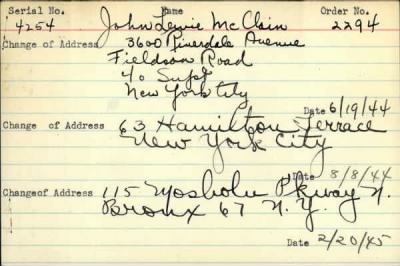 Serial No. Name Order No.
4254 John Lewie McClain 2294
Change of Address 3600 Riverdale Avenue
Fieldson Road
c/o Supt
New York City
Date 6/19/44
Change of Address 63 Hamilton Terrace
New York City
Date 8/8/44
Changeof Address 115 Mosholu Pkway N.
Bronx 67 N.Y.
Date 2/20/45